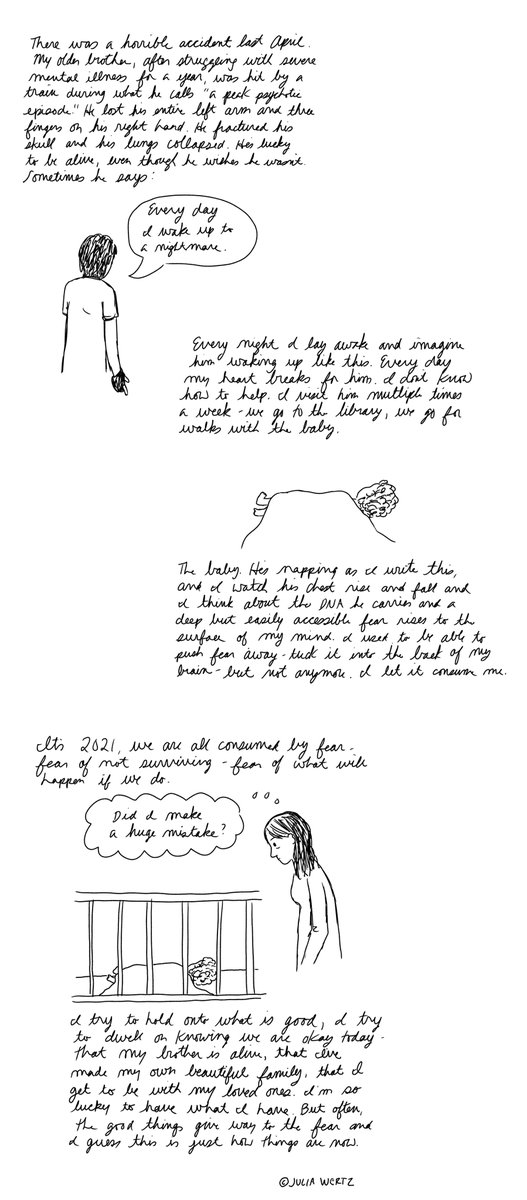 There was a horrible accident last April.
My older brother, after struggling with severe
mental illness for a year, was hit by a
train during what he calls "a peck psychotic
episode." He lost his entire left arm and three
fingers on his right hand. He fractured his
skull and his lungs collapsed. He's lucky
to be alive, even though he wishes he wasn't.
Sometimes he says:
Every day
I wake up to
a nightmare.
Every night I lay awake and imagine
him waking up like this. Every day
my heart breaks for him. I don't know
how to help. I visit him multiple times
a week - we go to the library, we go for
walks with the baby.
The baby. He's napping as I write this,
and I watch his chest rise and fall and
I think about the DNA he carries and a
deep but easily accessible fear rises to the
surface of my mind. I used to be able to
push fear away - tuck it into the back of my
brain - but not anymore. I let it consume me.
It's 2021, we are all consumed by fear -
fear of not surviving - fear of what will
happen if we do.
Did I make
a huge mistake?
I try to hold onto what is good, I try
to dwell on knowing we are okay today -
that my brother is alive, that I've
made my own beautiful family, that I
get to be with my loved ones. I'm so
lucky to have what I have. But often,
the good things give way to the fear and
I guess this is just how things are now.
©JULIA WERTZ